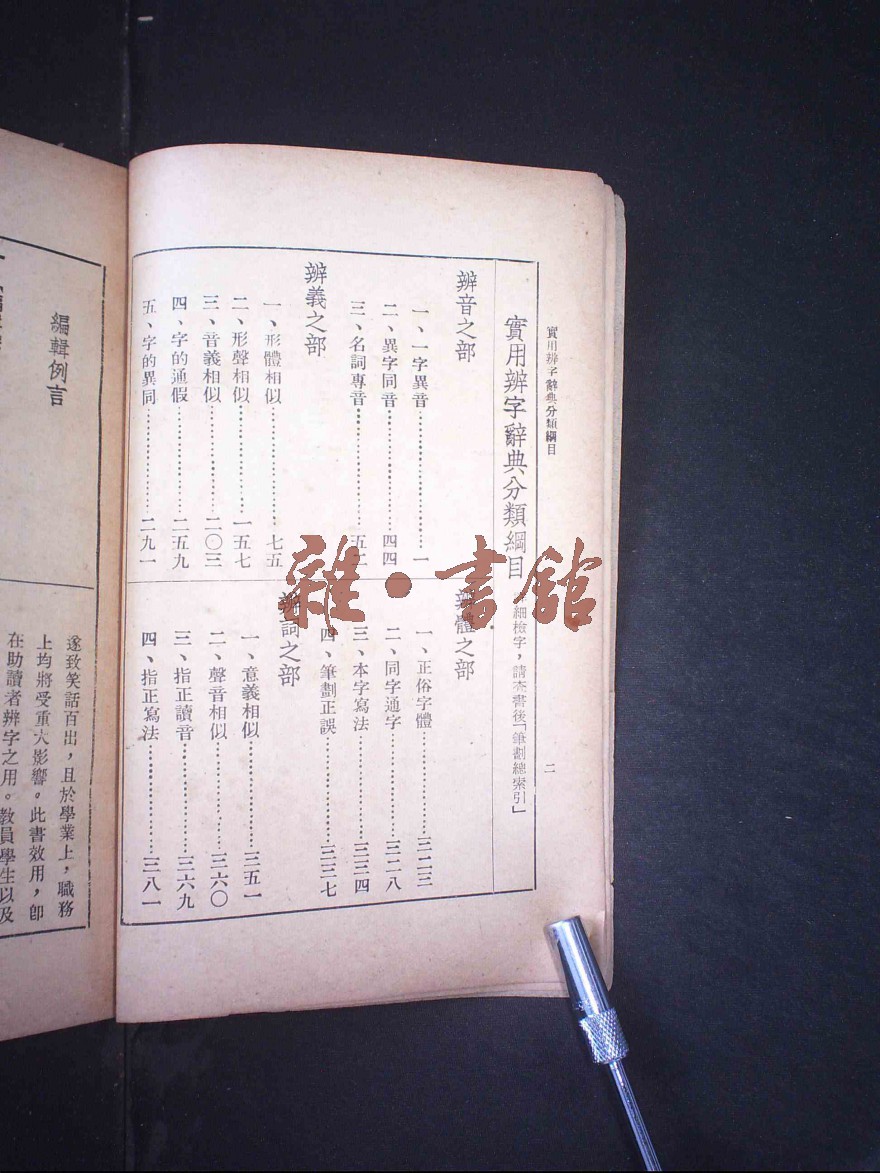 實用辨字辭典分類綱目
二
實用辨字辭典分類綱目
細檢字，請查書後「筆劃總索引」
辨音之部
一、一字異音……一
二、異字同音……四四
三、名詞專音……五
辨義之部
一、形體相似……七五
二、形聲相似……一五七
三、音義相似……二〇三
四、字的通假……二五九
五、字的異同……二九一
辨體之部
一、正俗字體……三二三
二、同字通字……三二八
三、本字寫法……三三四
四、筆劃正誤……三三七
辨詞之部
一、意義相似……三五一
二、聲音相似……三六〇
三、指正讀音……三六九
四、指正寫法……三八一
編輯例言
遂致笑話百出，且於學業上，職務
上均將受重大影響。此書效用，卽
在助讀者辨字之用。教員學生以及
雜·書館